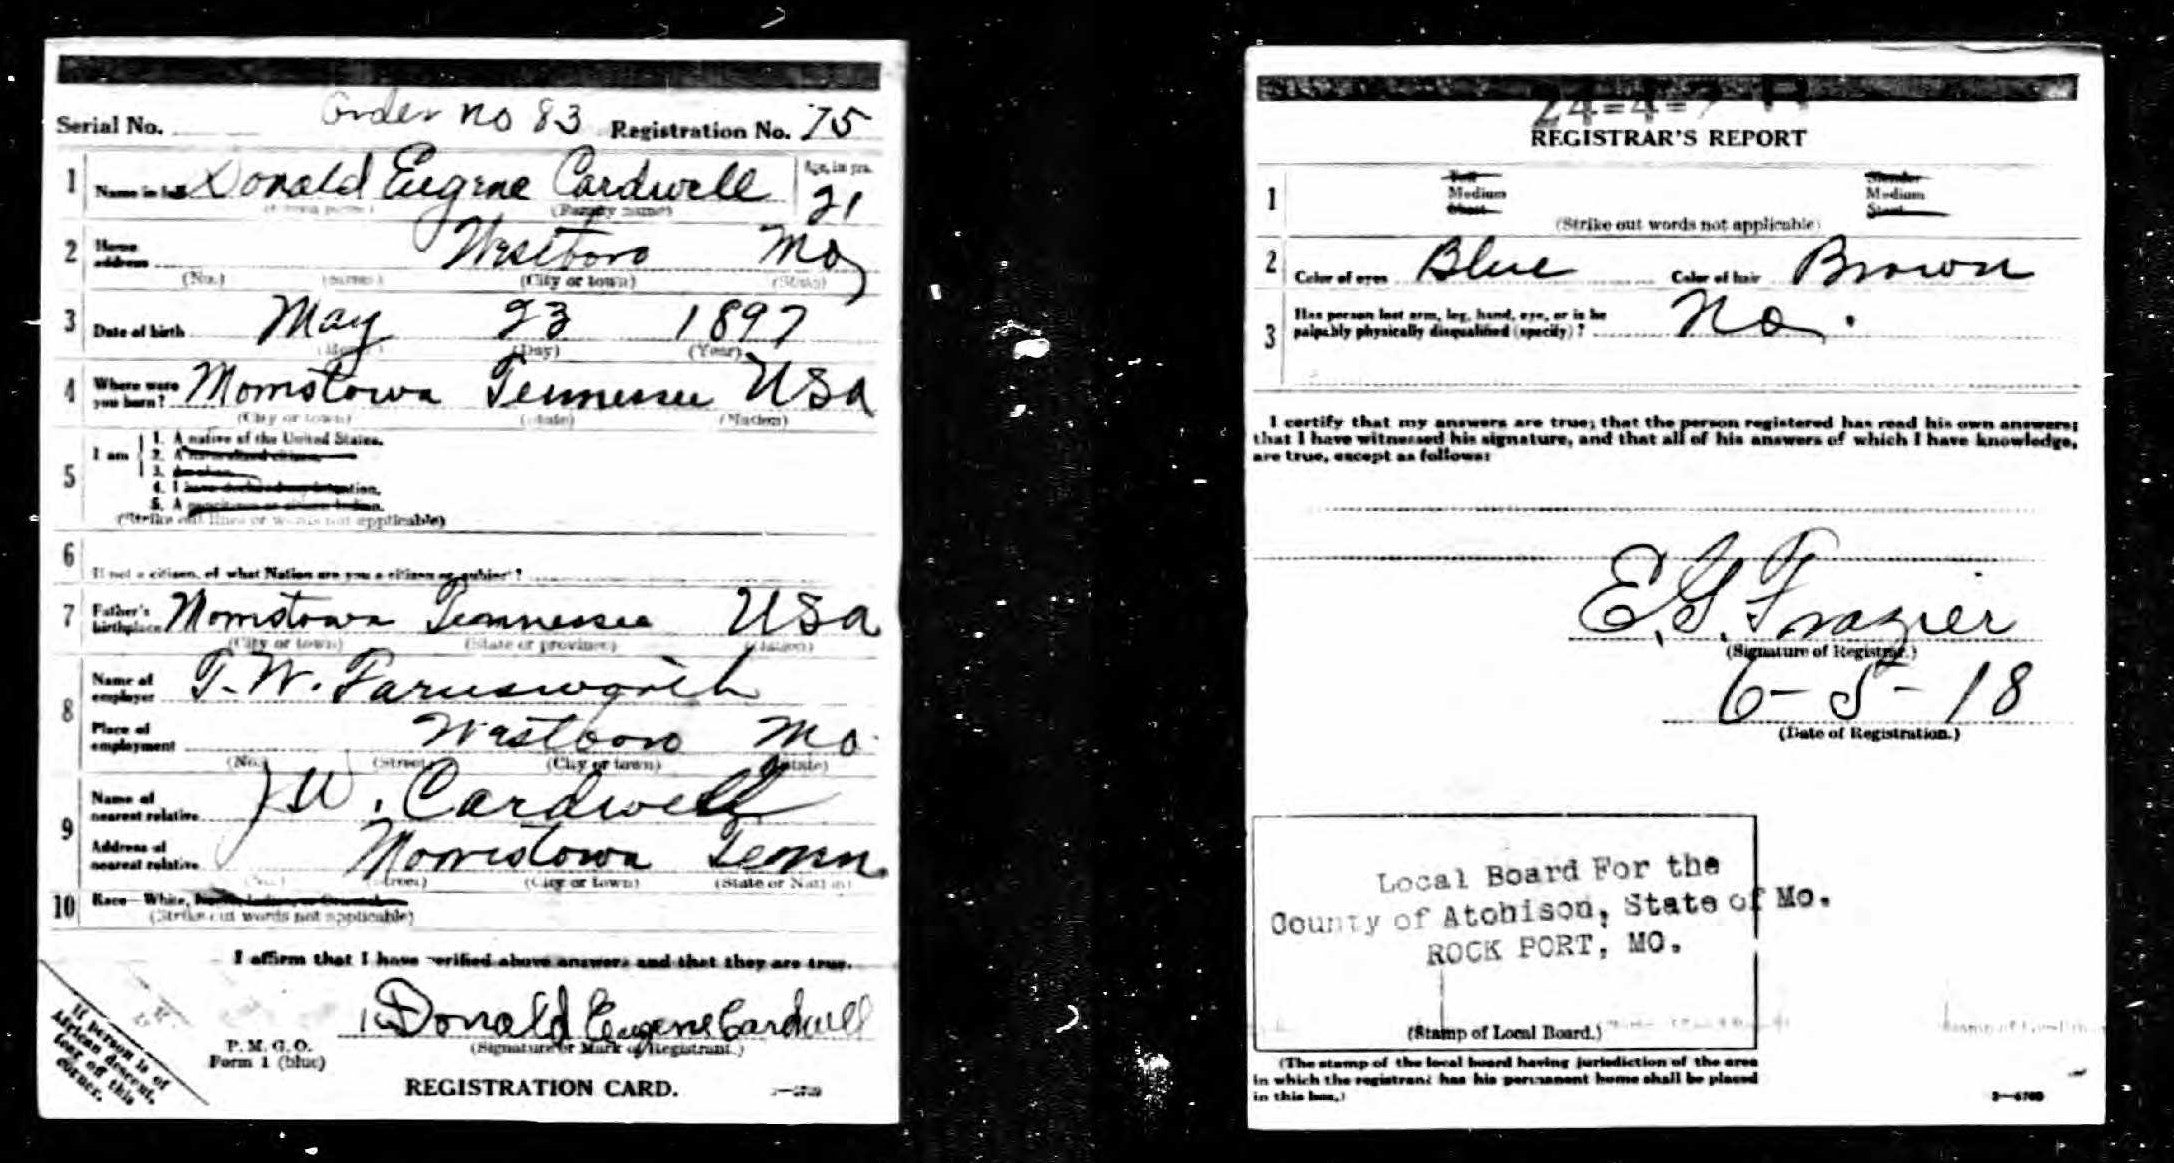 Order no 83
Serial No. Registration No. 75
1 Name in full Donald Eugene Cardwell Age, in yrs. 21
(Family name)
2 Home address Westboro Mo
(No.) (Street) (City or town) (State)
3 Date of birth May 23 1897
(Month) (Day) (Year)
4 Where were you born? Morristown Tennessee USA
(City or town) (State) (Nation)
5 I am 1. A native of the United States.
2. A naturalized citizen.
3. An alien.
4. I have declared my intention.
5. A noncitizen or citizen Indian.
(Strike out lines or words not applicable)
6 If not a citizen, of what Nation are you a citizen or subject?
7 Father's birthplace Morristown Tennessee USA
(City or town) (State or province) (Nation)
8 Name of employer T. W. Farnsworth
Place of employment Westboro Mo
(No.) (Street) (City or town) (State)
9 Name of nearest relative J W. Cardwell
Address of nearest relative Morristown Tenn.
(No.) (Street) (City or town) (State or Nation)
10 Race—White,
(Strike out words not applicable)
I affirm that I have verified above answers and that they are true.
Donald Eugene Cardwell
(Signature or Mark of Registrant.)
P. M. G. O.
Form 1 (blue)
REGISTRATION CARD.
If person is of
African descent,
tear off this
corner.
24-4-7
REGISTRAR'S REPORT
1 Tall Slender
Medium Medium
Short Stout
(Strike out words not applicable)
2 Color of eyes Blue Color of hair Brown
3 Has person lost arm, leg, hand, eye, or is he
palpably physically disqualified (specify)? No.
I certify that my answers are true; that the person registered has read his own answers;
that I have witnessed his signature, and that all of his answers of which I have knowledge,
are true, except as follows:
E. G. Frazier
(Signature of Registrar.)
6-5-18
(Date of Registration.)
Local Board For the
County of Atchison, State of Mo.
ROCK PORT, MO.
(Stamp of Local Board.)
(The stamp of the local board having jurisdiction of the area
in which the registrant has his permanent home shall be placed
in this box.)